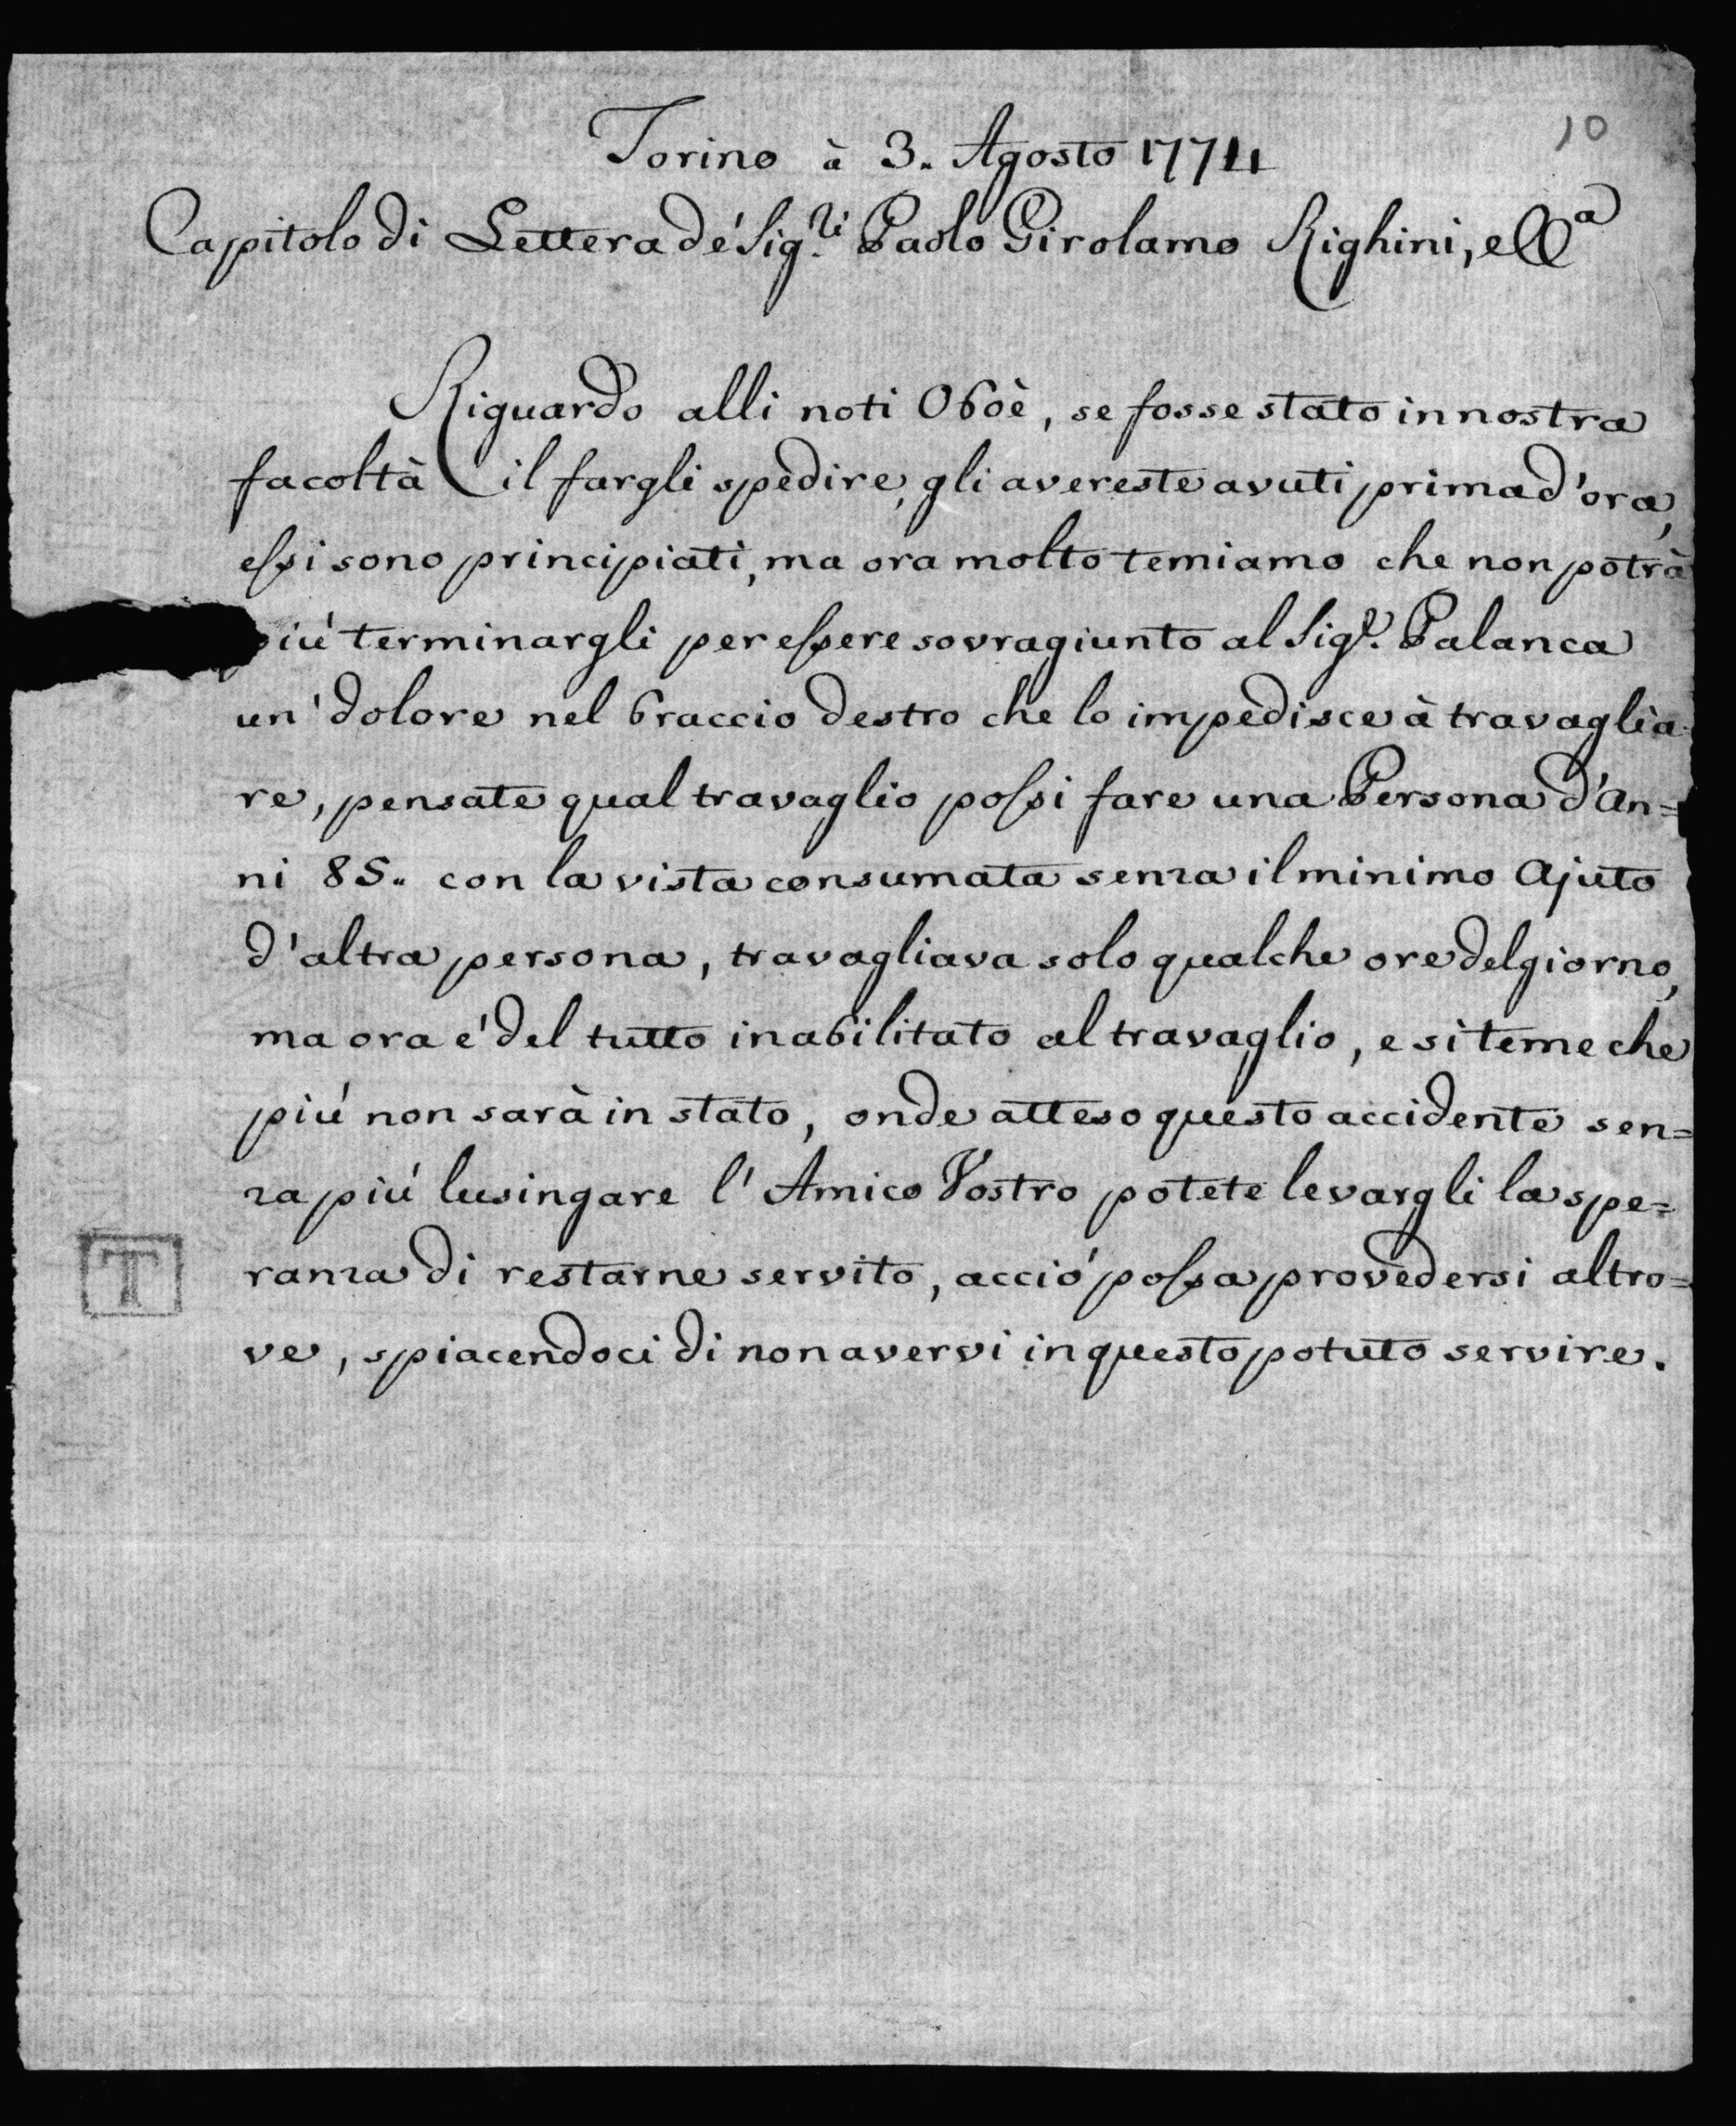 10
Torino à 3. Agosto 1774
Capitolo di Lettera de' Sig.ri Paolo Girolamo Righini, e CC.a
Riguardo alli noti Oboè, se fosse stato in nostra
facoltà il fargli spedire, gli avereste avuti prima d'ora,
essi sono principiati, ma ora molto temiamo che non potrà
più terminargli per essere sovragiunto al Sig.r Palanca
un' dolore nel braccio destro che lo impedisce à travaglia-
re, pensate qual travaglio possi fare una Persona d'An=
ni 85. con la vista consumata senza il minimo Ajuto
d'altra persona, travagliava solo qualche ore del giorno,
ma ora e' del tutto inabilitato al travaglio, e si teme che
piú non sarà in stato, onde atteso questo accidente sen=
za piú lusingare l'Amico Vostro potete levargli la spe=
ranza di restarne servito, acció possa provedersi altro=
ve, spiacendoci di non avervi in questo potuto servire.
T